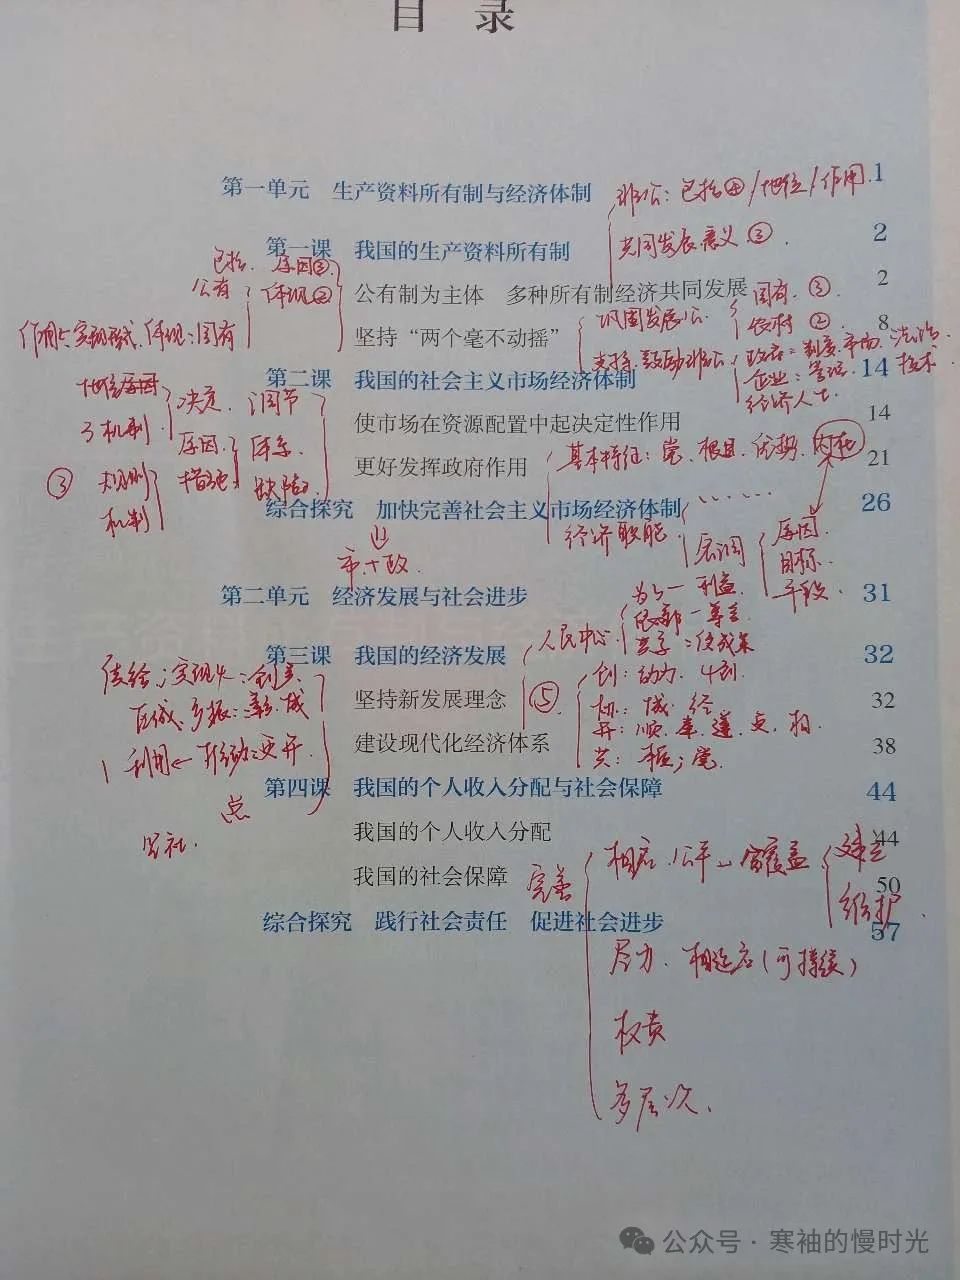 目 录
第一单元 生产资料所有制与经济体制 1
非公：包括④/地位/作用
第一课 我国的生产资料所有制 2
共同发展意义③
包括 原因③
公有 体现②
公有制为主体 多种所有制经济共同发展 2
国有 ③
坚持“两个毫不动摇” 8
巩固发展公
农村 ②
作用 实现形式 体现：国有
支持、鼓励非公
政府：制度、市场、法治
第二课 我国的社会主义市场经济体制 14
企业：管理 技术
经济人士
地位原因
了机制
决定 调节
使市场在资源配置中起决定性作用 14
原因 体系
更好发挥政府作用 21
基本特征：党、根目、优势
③ 规则 措施 缺陷
机制
综合探究 加快完善社会主义市场经济体制 26
经济职能
宏调
原因
目标
手段
市+政
第二单元 经济发展与社会进步 31
人民中心
第三课 我国的经济发展 32
坚持新发展理念 32
⑤
创：动力
协：城 经
建设现代化经济体系 38
第四课 我国的个人收入分配与社会保障 44
我国的个人收入分配 44
相应 公平 全覆盖
建立
我国的社会保障 50
完善
维护
综合探究 践行社会责任 促进社会进步 57
尽力、相适应（可持续）
权责
多层次
公众号·寒袖的慢时光